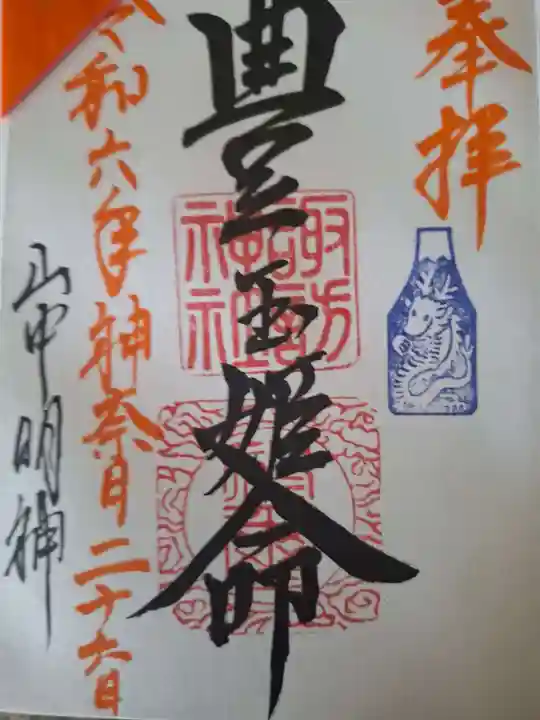 奉拝
豊玉姫命
諏訪神社
令和六年神奈月二十六日
山中明神